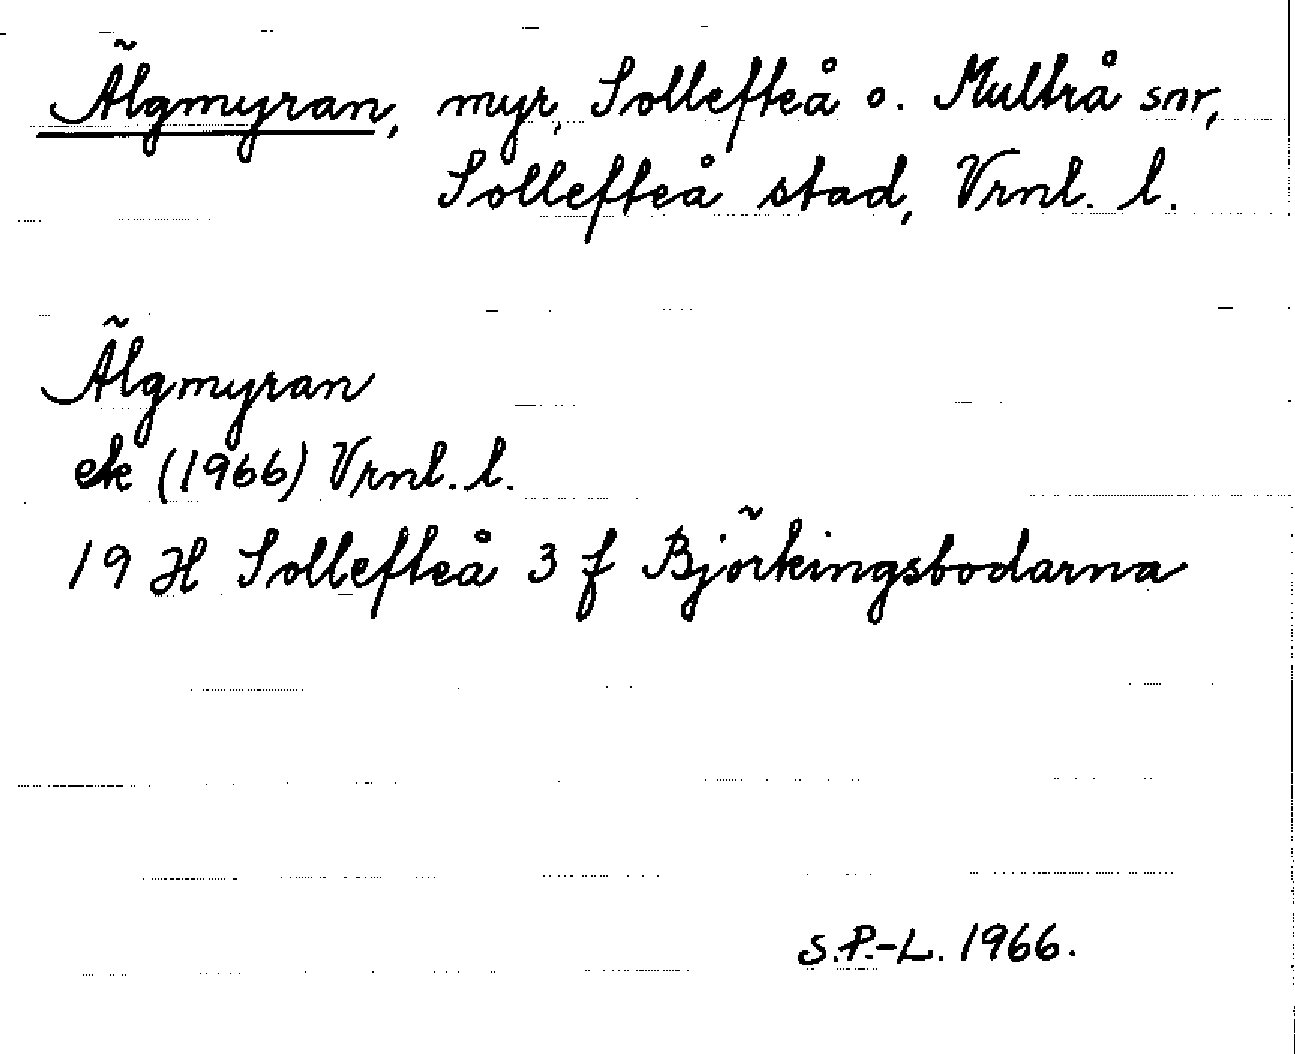 Älgmyran, myr, Sollefteå o. Multrå snr,
Sollefteå stad, Vrnl. l.
Älgmyran
ek (1966) Vrnl. l.
19 H Sollefteå 3 f Björkingsbodarna
S.P.-L. 1966.